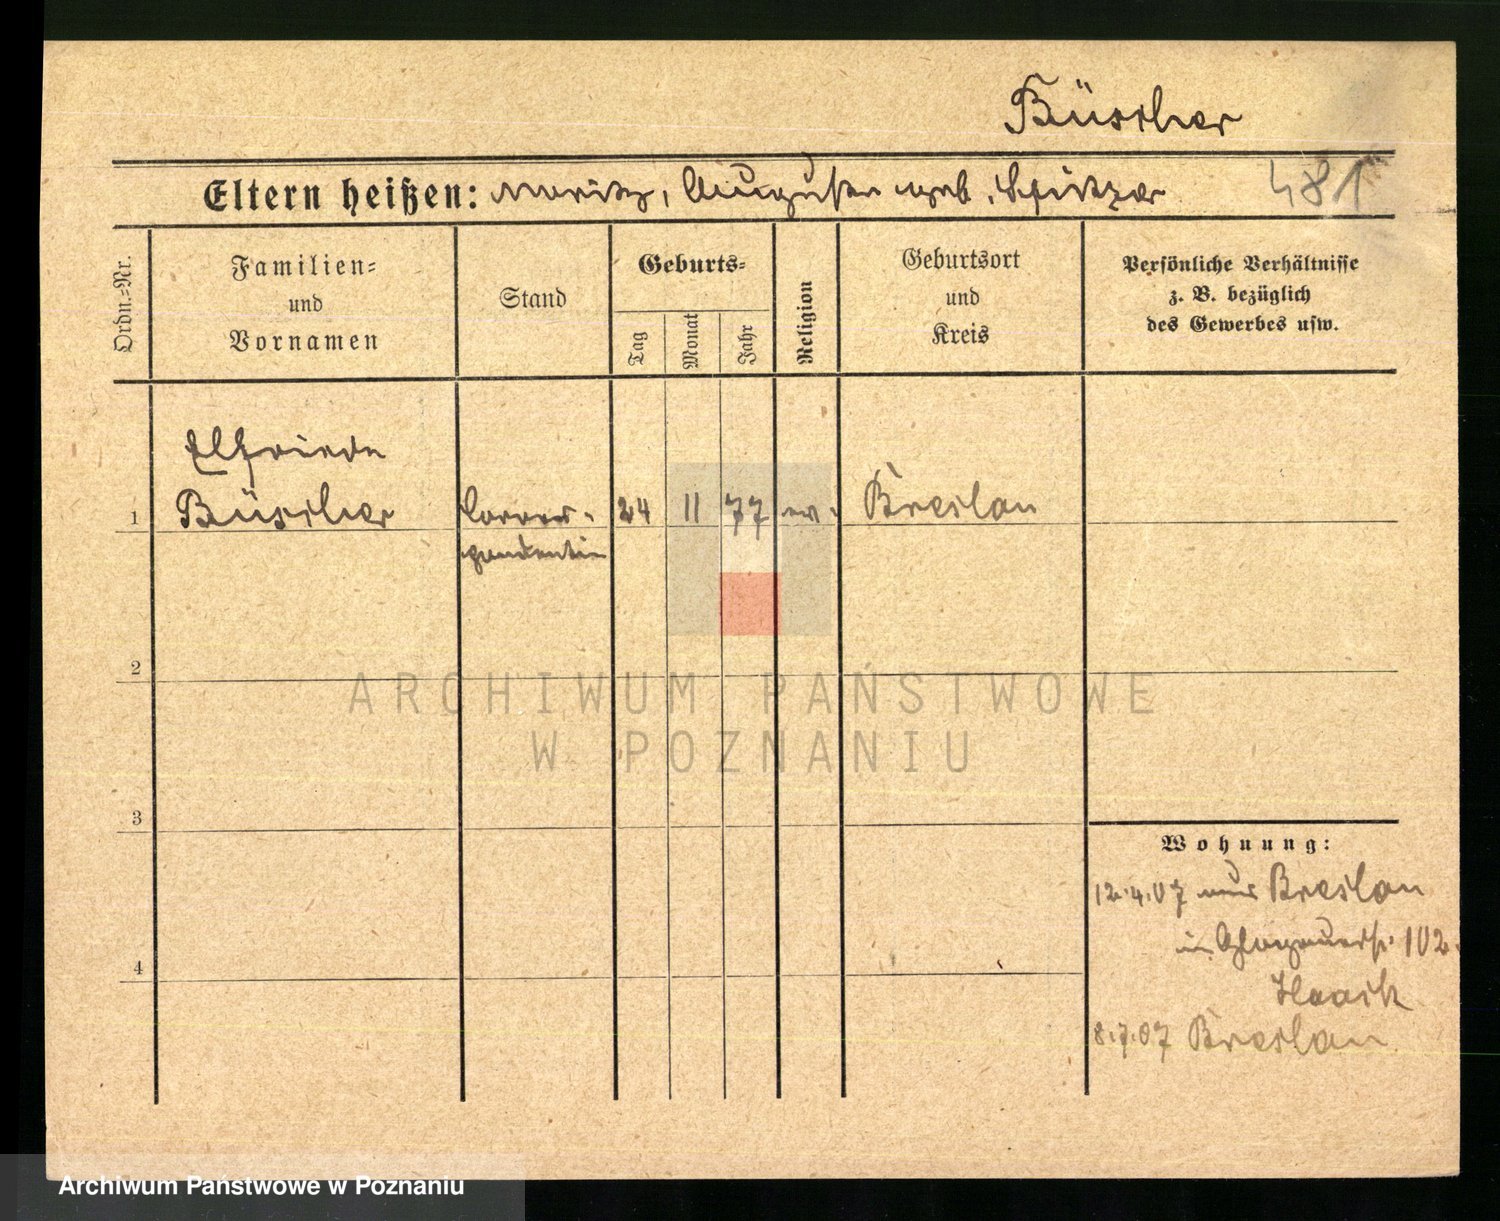 Büscher
Eltern heißen: Moritz, Auguste geb. Spitzer 481
Ordn.=Nr.
Familien=
und
Vornamen
Stand
Geburts=
Tag
Monat
Jahr
Religion
Geburtsort
und
Kreis
Persönliche Verhältnisse
z. B. bezüglich
des Gewerbes usw.
Elfriede
1 Büscher Corres- 24 11 77 ev. Breslau
pondentin
2
3
4
Wohnung:
12.4.07 aus Breslau
in Glogauerstr. 102.
8.7.07 Breslau
ARCHIWUM PAŃSTWOWE
W POZNANIU
Archiwum Państwowe w Poznaniu